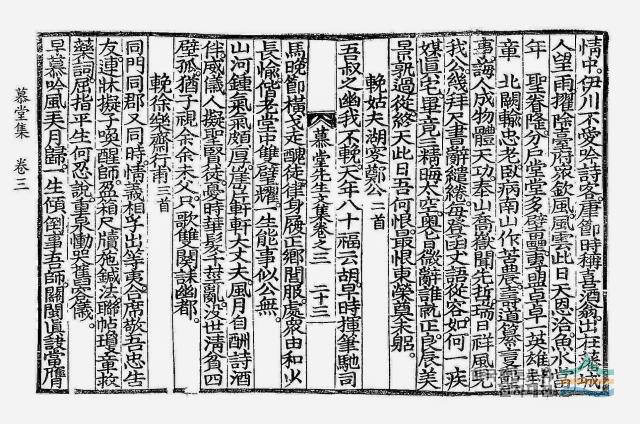 情中。伊川不愛吟詩客。康節時稱喜酒翁。出在萊城
人望雨。擢除臺府衆欽風。風雲此日天恩洽。魚水當
年聖眷隆。分戶堂堂多壁壘。夷盟卓卓一英雄。封
章北闕輸忠老。臥病南山作苦農。壽道纂言
事。誨人成物體天功。泰山喬嶽聞先哲。瑞日祥風見
我公。幾拜尺書辭繾綣。每容函丈語從容。如何一疾
媒眞宅。畢竟三精晦太空。奧旨微辭誰就正。良辰美
景孰過從。終天此日吾何恨。最恨東榮奠未躬。
輓姑夫湖叟鄭公 二首
吾叔之幽我不輓。天年八十福云胡。早時揮筆馳司
慕堂先生文集卷之三 二十三
馬。晩節橫戈走醜徒。律身展正鄕閭服。處衆由和火
長愉。偕老堂中雙璧耀。一生能事似公無。
山河鍾氣氣頗厚。落落軒軒大丈夫。風月自酬詩酒
伴。威儀人擬聖賢徒。憂時華髮千莖亂。沒世淸貧四
壁孤。猶子視余余未父。只歌雙闋誄幽都。
輓徐樂齋行雨 三首
同門同郡又同時。情義相孚出等夷。合席敬吾忠告
友。連床擬子喚醒師。盈箱尺牘施鍼法。聯帖瓊章救
藥詞。屈指平生何忍說。重泉慟哭舊容儀。
早慕吟風弄月歸。一生傾倒事吾師。關閩眞諦當膺
慕堂集 卷三